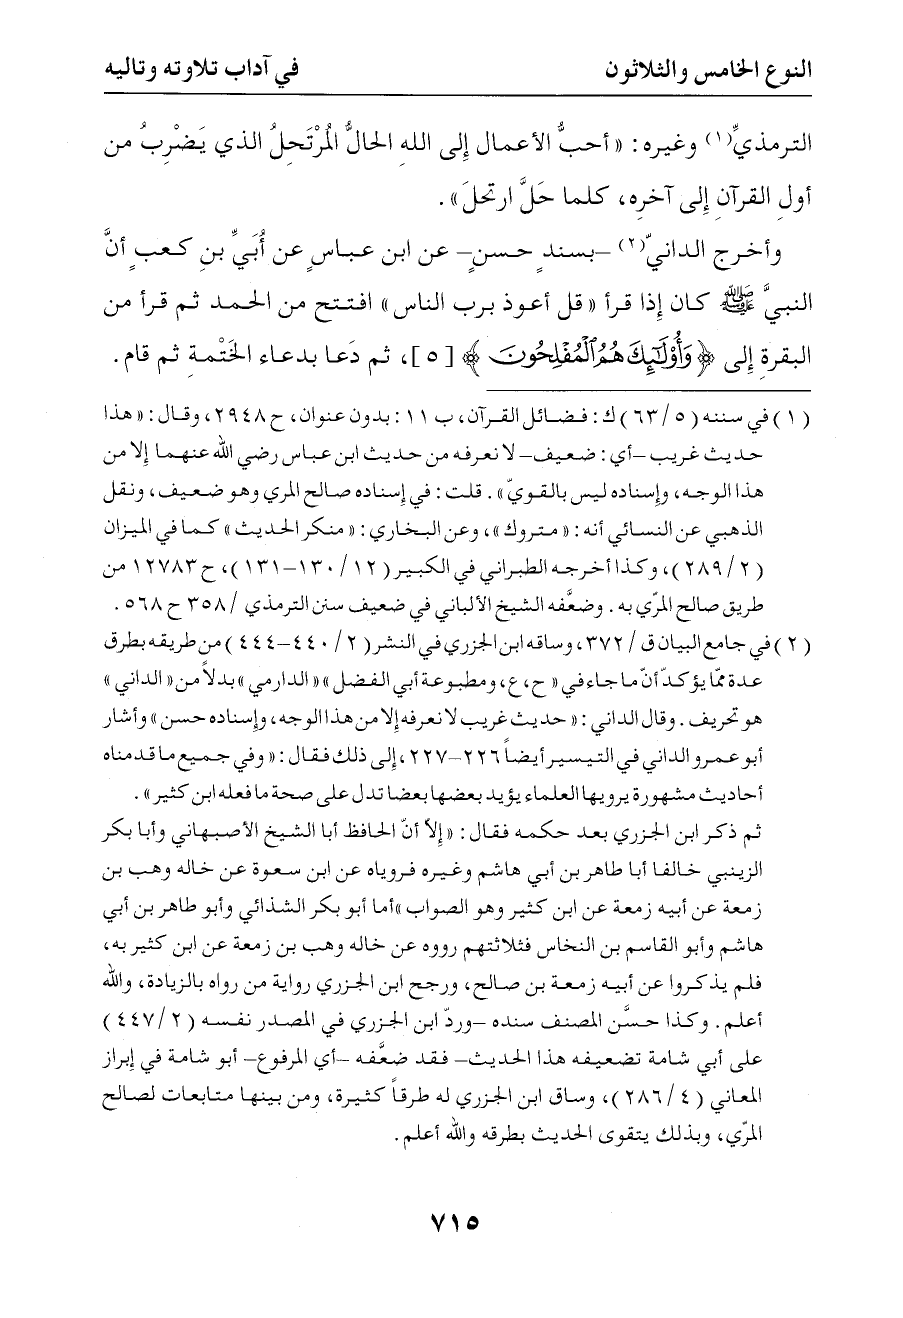 النوع الخامس والثلاثون في آداب تلاوته وتاليه
الترمذيِّ(١) وغيره: «أحبُّ الأعمال إلى اللهِ الحالُّ المُرْتَحِلُ الذي يَضْرِبُ من
أولِ القرآنِ إلى آخرِه، كلما حَلَّ ارتحلَ».
وأخرج الدانيّ(٢) –بسندٍ حسنٍ– عن ابن عباسٍ عن أُبَيِّ بنِ كعبٍ أنَّ
النبيَّ ﷺ كان إذا قرأ «قل أعوذ برب الناس» افتتح من الحمد ثم قرأ من
البقرة إلى ﴿وَأُوْلَٰٓئِكَ هُمُ ٱلْمُفْلِحُونَ﴾ [٥]، ثم دَعا بدعاء الخَتْمة ثم قام.
(١) في سننه (٦٣/٥) ك: فضائل القرآن، ب ١١: بدون عنوان، ح ٢٩٤٨، وقال: «هذا
حديث غريب –أي: ضعيف– لا نعرفه من حديث ابن عباس رضي الله عنهما إلا من
هذا الوجه، وإسناده ليس بالقويّ». قلت: في إسناده صالح المري وهو ضعيف، ونقل
الذهبي عن النسائي أنه: «متروك»، وعن البخاري: «منكر الحديث» كما في الميزان
(٢٨٩/٢)، وكذا أخرجه الطبراني في الكبير (١٢/ ١٣٠–١٣١)، ح ١٢٧٨٣ من
طريق صالح المرّي به. وضعَّفه الشيخ الألباني في ضعيف سنن الترمذي /٣٥٨ ح ٥٦٨.
(٢) في جامع البيان ق /٣٧٢، وساقه ابن الجزري في النشر (٢/ ٤٤٠–٤٤٤) من طريقه بطرق
عدة ممّا يؤكد أنّ ما جاء في «ح، ع، ومطبوعة أبي الفضل» «الدارمي» بدلاً من «الداني»
هو تحريف. وقال الداني: «حديث غريب لا نعرفه إلا من هذا الوجه، وإسناده حسن» وأشار
أبو عمرو الداني في التيسير أيضاً ٢٢٦–٢٢٧، إلى ذلك فقال: «وفي جميع ما قدمناه
أحاديث مشهورة يرويها العلماء يؤيد بعضها بعضا تدل على صحة ما فعله ابن كثير».
ثم ذكر ابن الجزري بعد حكمه فقال: «إلاّ أنّ الحافظ أبا الشيخ الأصبهاني وأبا بكر
الزينبي خالفا أبا طاهر بن أبي هاشم وغيره فروياه عن ابن سعوة عن خاله وهب بن
زمعة عن أبيه زمعة عن ابن كثير وهو الصواب» أما أبو بكر الشذائي وأبو طاهر بن أبي
هاشم وأبو القاسم بن النخاس فثلاثتهم رووه عن خاله وهب بن زمعة عن ابن كثير به،
فلم يذكروا عن أبيه زمعة بن صالح، ورجح ابن الجزري رواية من رواه بالزيادة، والله
أعلم. وكذا حسَّن المصنف سنده –وردّ ابن الجزري في المصدر نفسه (٤٤٧/٢)
على أبي شامة تضعيفه هذا الحديث– فقد ضعَّفه –أي المرفوع– أبو شامة في إبراز
المعاني (٢٨٦/٤)، وساق ابن الجزري له طرقاً كثيرة، ومن بينها متابعات لصالح
المرّي، وبذلك يتقوى الحديث بطرقه والله أعلم.
٧١٥